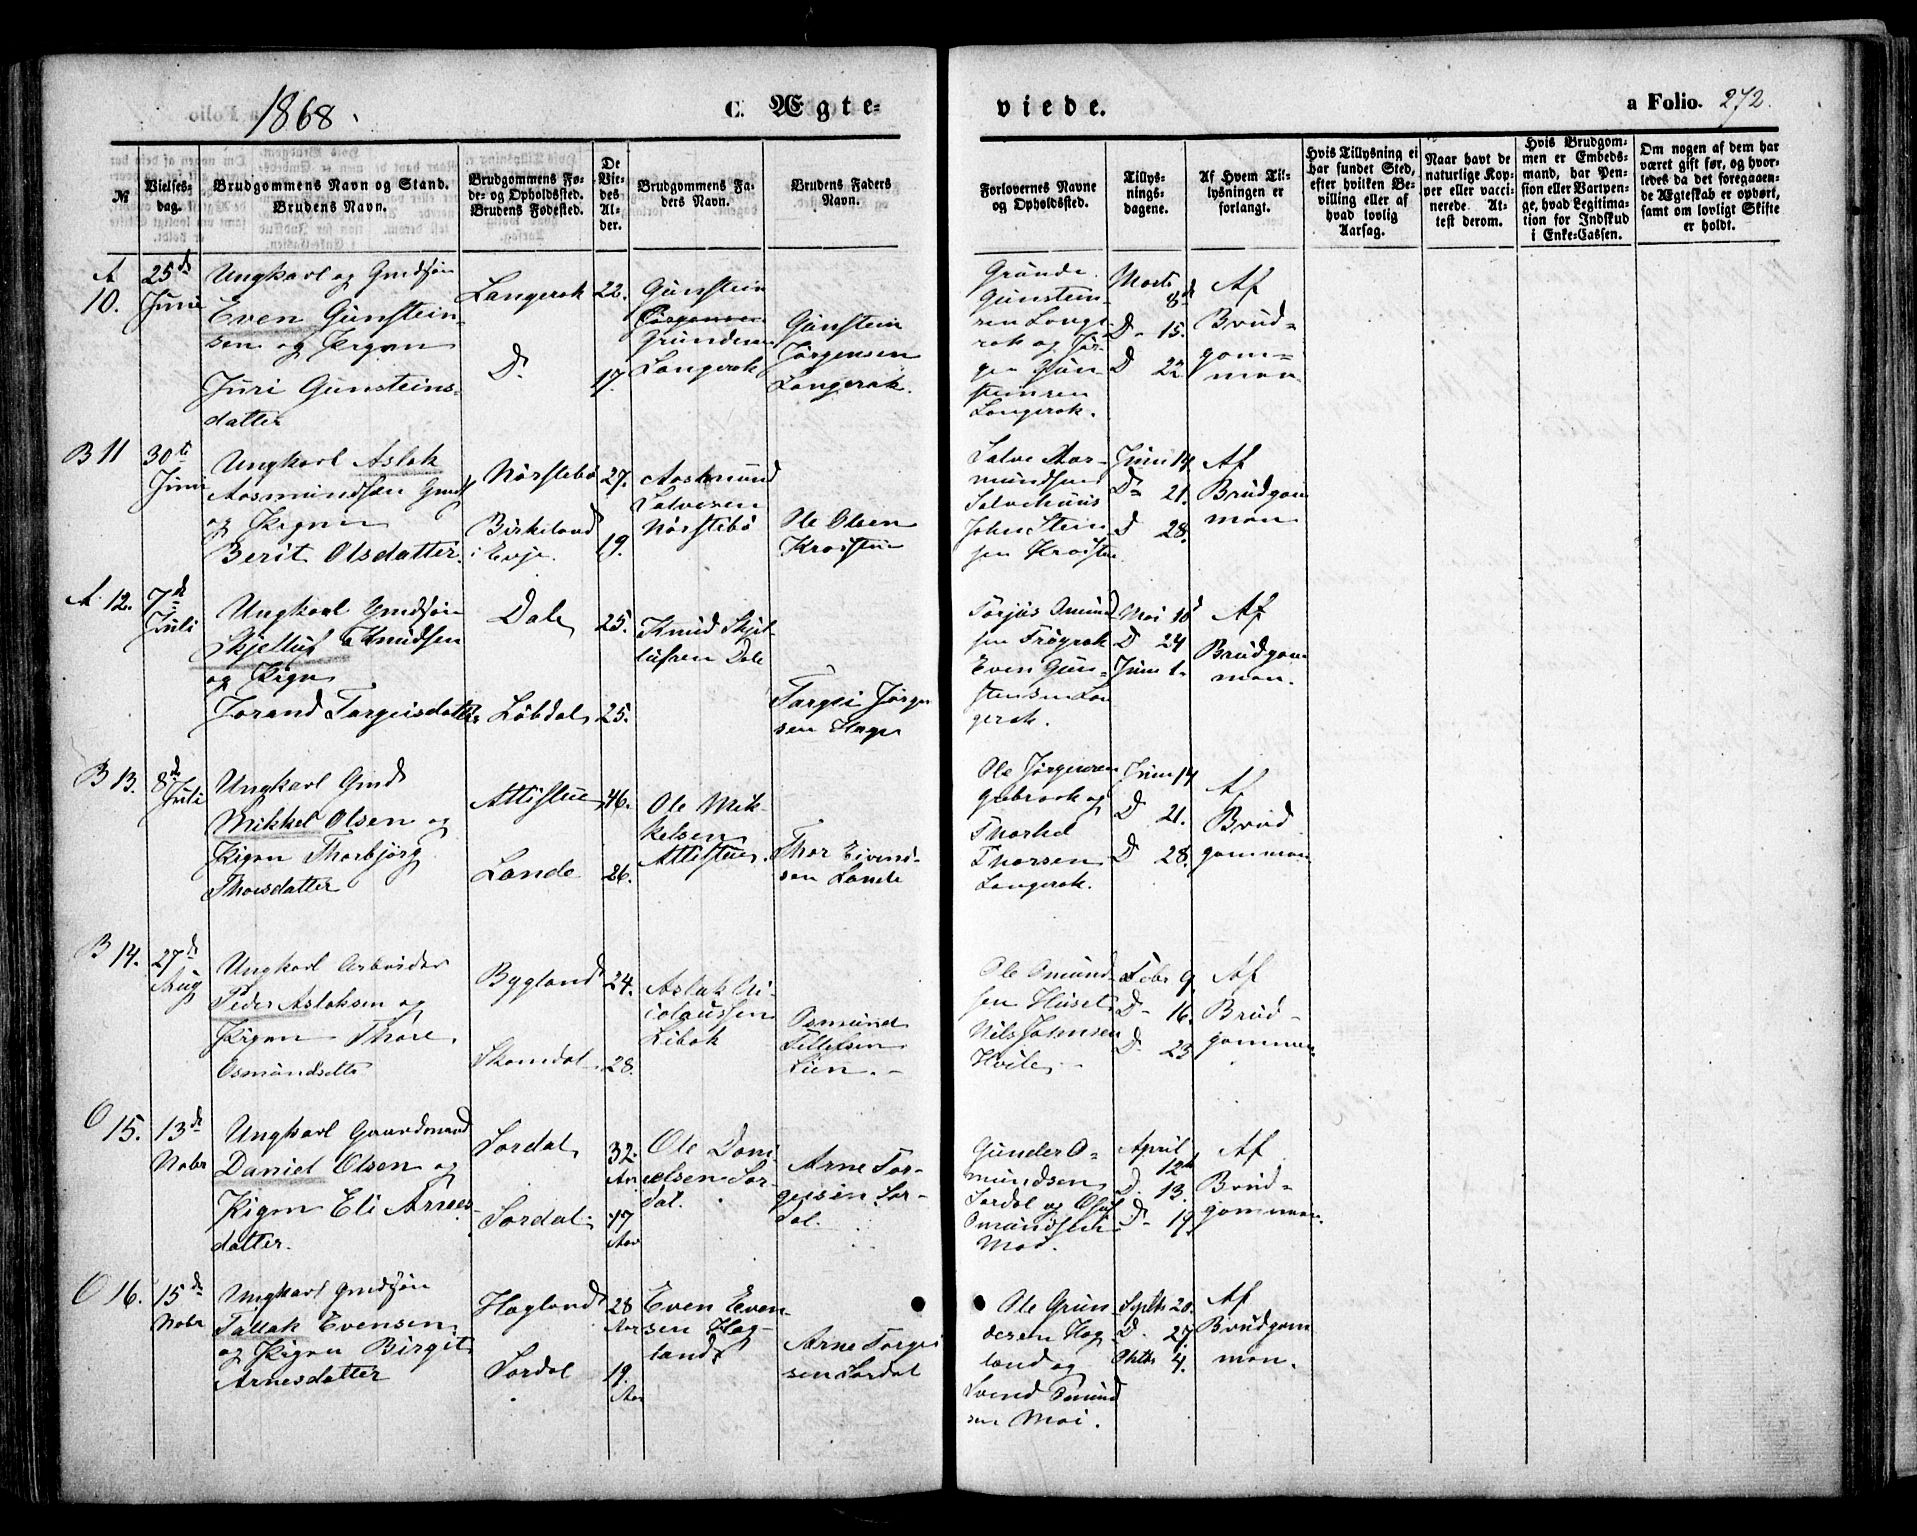 1868.
C. Ægte-
viede.
a Folio. 272.
№
Vielses-
dag.
Brudgommens Navn og Stand.
Brudens Navn.
Brudgommens Fø-
de- og Opholdssted.
Brudens Fødested.
De
Vie-
des
Al-
der.
Brudgommens Fa-
ders Navn.
Brudens Faders
Navn.
Forlovernes Navne
og Opholdssted.
Tillys-
nings-
dagene.
Af Hvem Til-
lysningen er
forlangt.
Hvis Tillysning ei
har fundet Sted,
efter hvilken Be-
villing eller af
hvad lovlig
Aarsag.
Naar havt de
naturlige Kop-
per eller vacci-
nerede. At-
test derom.
Hvis Brudgom-
men er Embeds-
mand, har Pen-
sion eller Vartpen-
ge, hvad Legitima-
tion for Indskud
i Enke-Cassen.
Om nogen af dem har
været gift før, og hvor-
ledes da det foregaaen-
de Ægteskab er ophørt,
samt om lovligt Skifte
er holdt.
A
10.
25de
Juni
Ungkarl og Gmdsøn
Even Gunstein-
sen og Pigen
Juri Gunsteins-
datter
Langerak
D.
22.
17.
Gunstein
Jørgensen
Grundesen
Langerak
Gunstein
Jørgensen
Langerak.
Grunde
Gunstein-
sen Lange
rak og Jør-
gen Gun
steinsen
Langerak.
Marts
8de
D- 15.
D 22
Af
Brud-
gom-
man
B 11
30te
Juni
Ungkarl Aslak
Aasmundsøn Gmdk
og Pigen
Berit Olsdatter.
Nørstebø
Birkeland
i Evje.
27.
19.
Aasmund
Salvesen
Nørstebø
Ole Olsen
Salve Aas-
mundsen
John Stein
sen
Juni 14
D- 21.
D 28.
Af
Brudgom
man
A. 12.
7de
Juli
Ungkarl Gmdsøn
Skjelluf Knudsen
og Pigen
Jorand Targeisdatter
Dale
Løbdal
25.
25.
Knud Skjel-
lufsen Dale
Targei Jørgen
sen Hage
Torjus Omund
sen Frøyrak
Even Gun-
steinsen Lan
gerak.
Mai 10d
D 24
Juni 1.
Af
Brudgom
man.
B 13.
8de
Juli
Ungkarl Gmd
Mikkel Olsen og
Pigen Thorbjørg
Thorsdatter
Attistue
Lande
46.
26.
Ole Mik-
kelsen
Attistue.
Thor Eivend-
sen Lande
Ole Jørgensen
og
Thorkel
Thorsen
Langerak.
Juni 14
D 21.
D 28.
Af
Brud
gomman
B 14.
27de
Aug
Ungkarl Arbeider
Peder Aslaksen og
Pigen Thore
Osmundsdtr
Bygland
Skamdal
24.
28.
Aslak Ni-
colaussen
Libak
Osmund
Tellefsen
Lien.-
Ole Omund-
sen Huset
Nils Johnsen
Hvile
Febr 9
D- 16.
D. 23
Af
Brud-
gomman
O 15.
13de
Nobr
Ungkarl Gaardmand
Daniel Olsen og
Pigen Eli Arnes-
datter.
Sordal
Sordal
32
Aar
47
Aar
Ole Dani
elsen Sor-
dal.
Arne Tar-
geisen Sor-
dal.
Gunder O-
mundsen
Sordal og Olaf
Omundsen
Moi.
April
12te
D. 13.
D- 19.
Af
Brud-
gomman.
O 16.
15de
Nobr
Ungkarl Gmdsøn
Tallak Evensen
og Pigen Birgit
Arnesdatter
Hagland
Sordal
28
Aar
19.
Aar
Even Even-
sen Hag-
land
Arne Targei
sen Sordal
Ole Grun
desen Hag
land og
Svend Omund
sen Moi.
Septbr 20.
D. 27.
Oktbr 4.
Af
Brudgom
man.